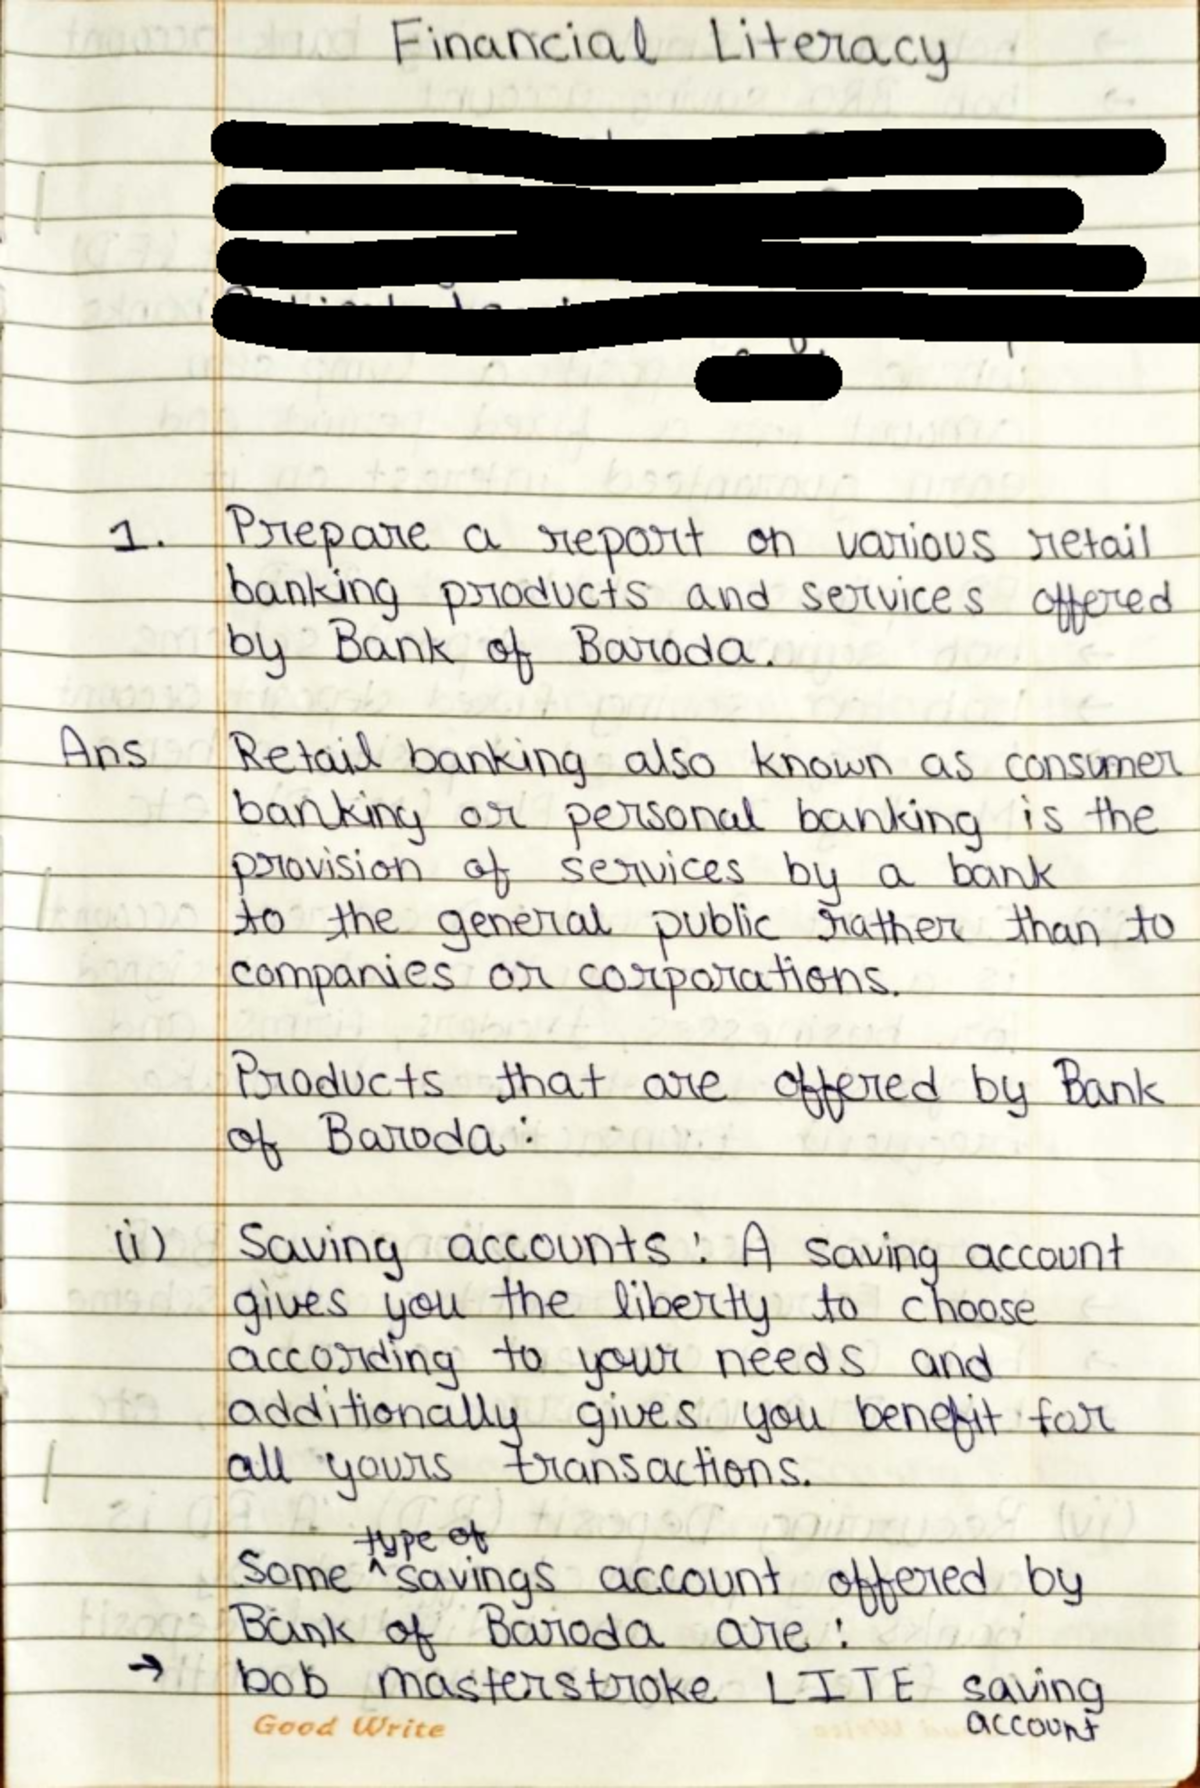 Financial Literacy
1. Prepare a report on various retail
banking products and services offered
by Bank of Baroda.
Ans Retail banking also known as consumer
banking or personal banking is the
provision of services by a bank
to the general public rather than to
companies or corporations.
Products that are offered by Bank
of Baroda:
(i) Saving accounts: A saving account
gives you the liberty to choose
according to your needs and
additionally gives you benefit for
all yours transactions.
type of
Some ^ savings account offered by
Bank of Baroda are:
→ bob masterstroke LITE saving
account
Good Write